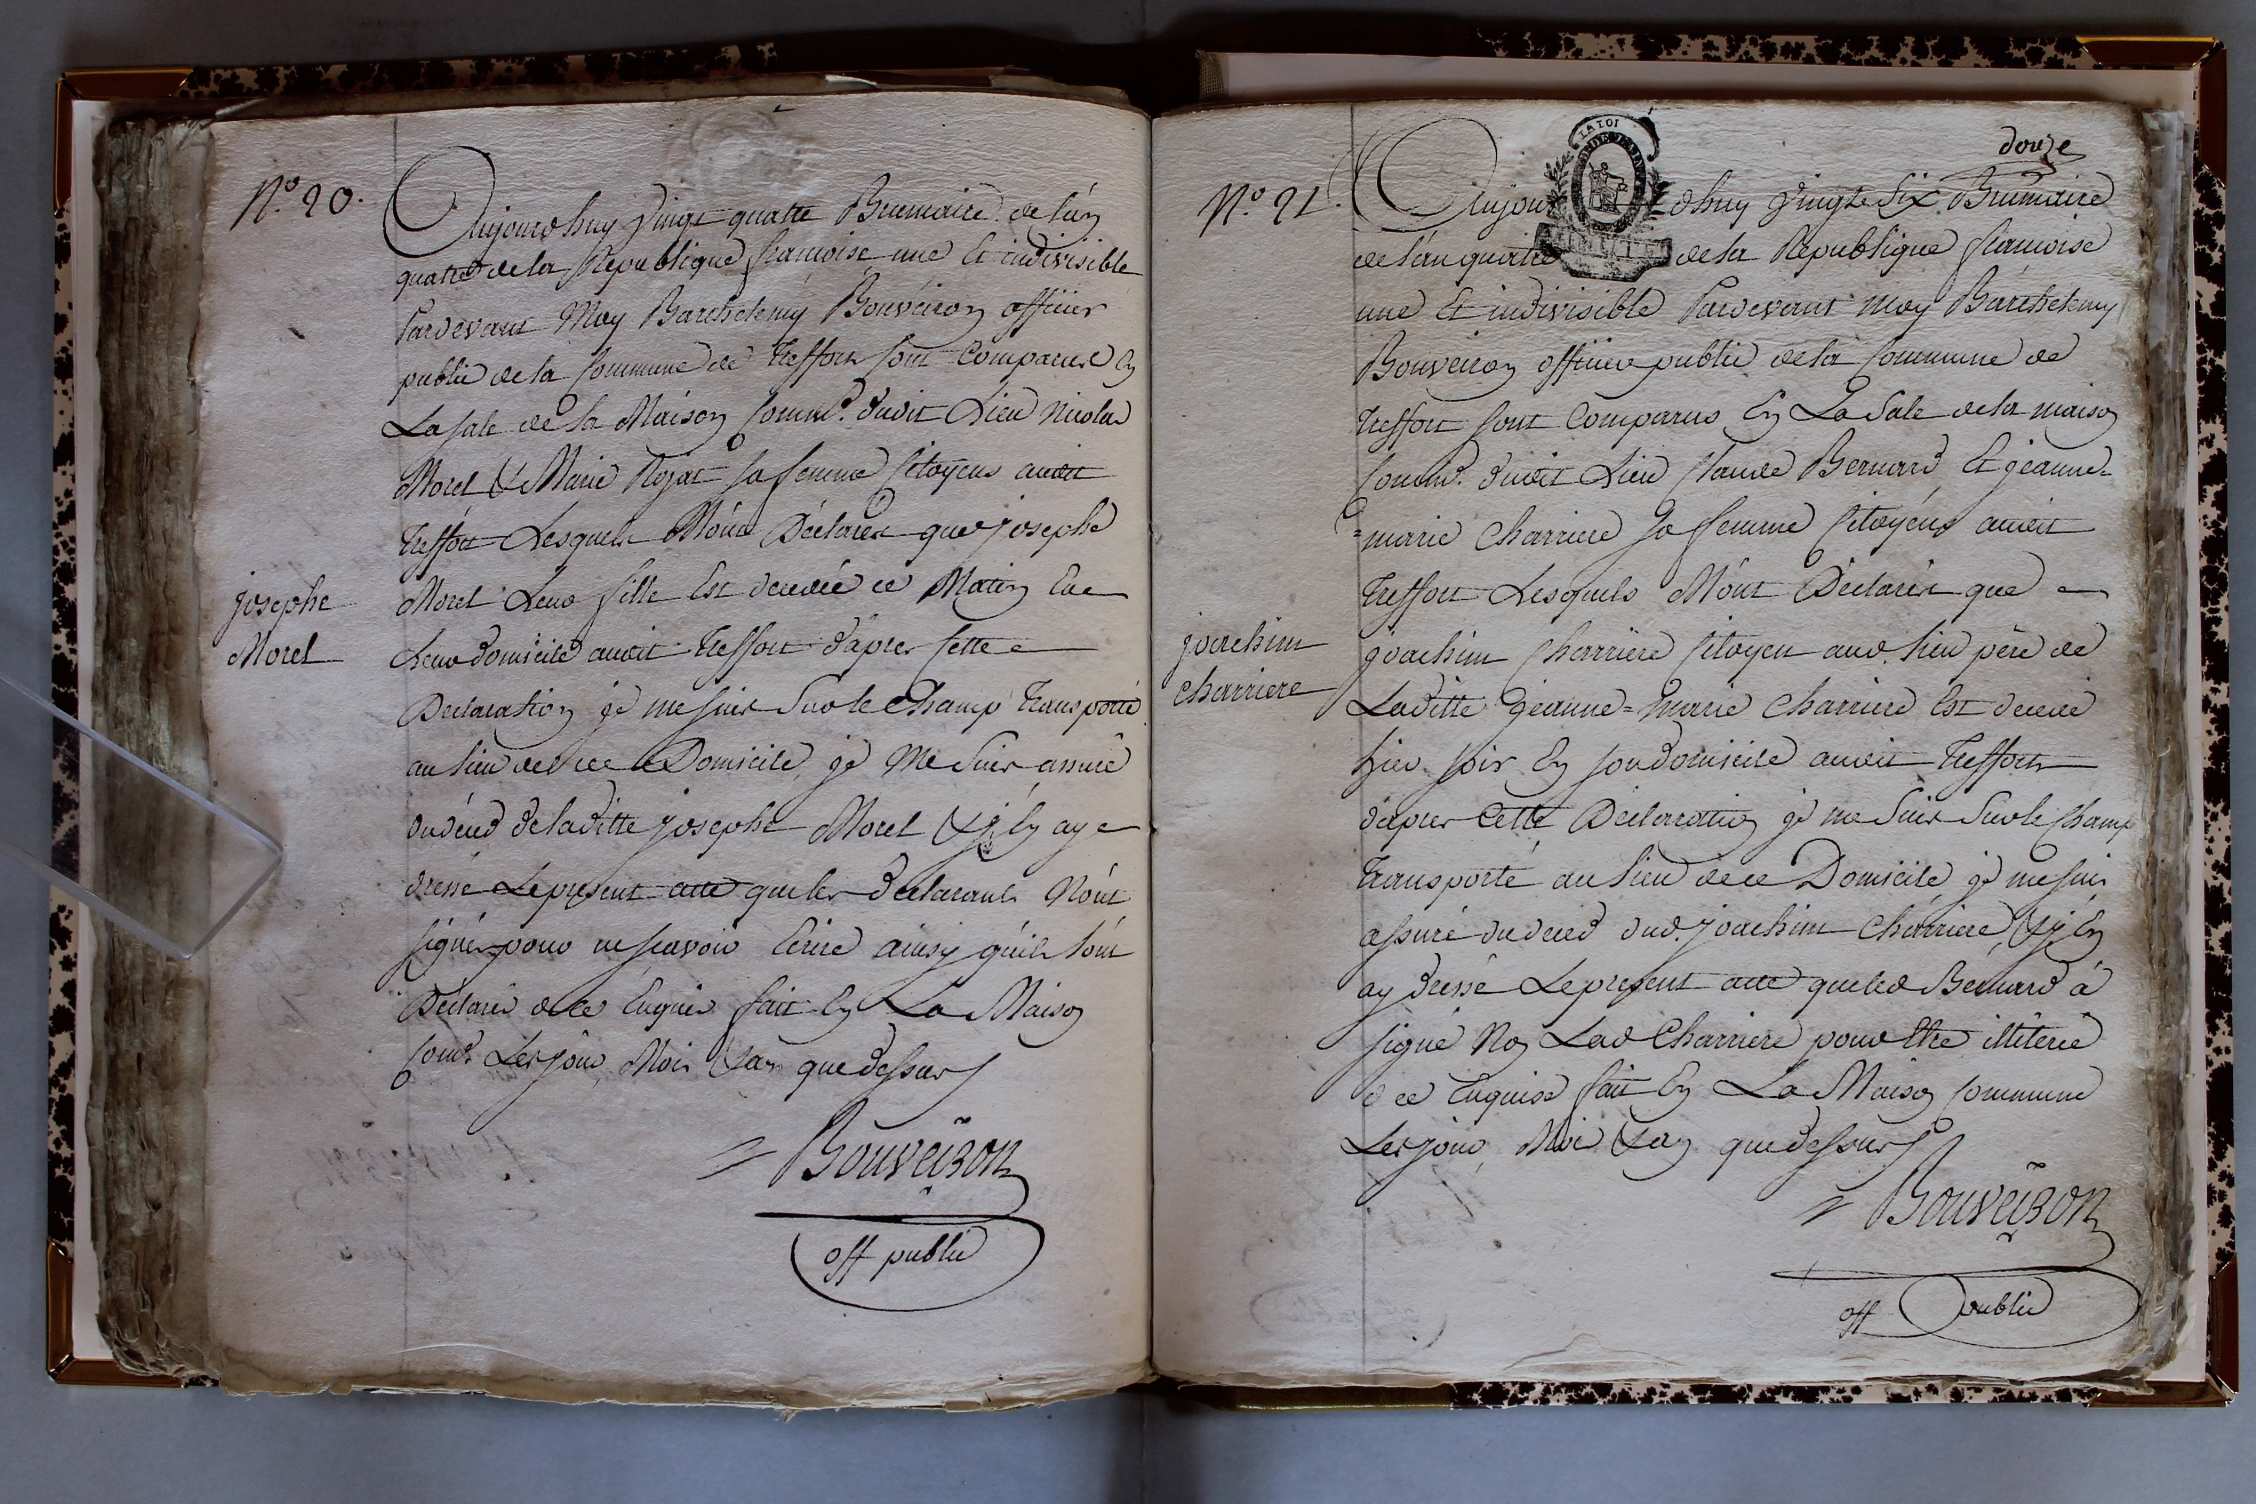 N.º 20.
Aujourdhuy Vingt quatre Brumaire de l'an
quatre de la Republique françoise une Et indivisible
Pardevant Moy Barthelemy Bouveiron officier
public de la Commune de treffort sont Comparus En
La sale de la Maison Comm.e dudit Lieu Nicolas
Morel & Marie Rojat sa femme Citoyens audit
treffort Lesquels M'ont Déclarer que josephe
josephe
Morel
Morel Leur fille Est decedée ce Matin En
Leur domicile audit treffort d'apres Cette
Declaration je me suis Sur le Champ transporté
au lieu de ce Domicile, je Me Suis assuré
du déced de laditte josephe Morel & j'En ay
dressé Le present acte que les declarants N'ont
signés pour ne scavoir Ecrire ainsy qu'ils L'ont
Déclaré de ce Enquis fait En La Maison
Com.e Les jour, Mois & an que dessus
Bouveiron
off public
douze
LA LOI
N.º 21.
Aujourdhuy Vingt Six Brumaire
de l'an quatre de la Republique françoise
une Et indivisible Pardevant Moy Barthelemy
Bouveiron officier public de la Commune de
treffort sont Comparus En La Sale de la maison
Comm.e dudit Lieu Claude Bernard Et jeanne=
=marie Charriere Sa femme Citoyens audit
treffort Lesquels M'ont Déclarér que
joachim
charriere
joachim Charriere Citoyen aud. lieu père de
Laditte jeanne=Marie Charriere Est decedé
hier soir En son domicile audit treffort
d'apres Cette Déclaration je me Suis Sur le Champ
transporté au lieu de ce Domicile je me suis
assuré du deced dud. joachim Charriere, & j'En
ay dressé Le present acte que led Bernard à
signé Non Lad Charriere pour Etre illiterée
de ce Enquise fait En La Maison Commune
Les jour, Mois & an que dessus
Bouveiron
off public